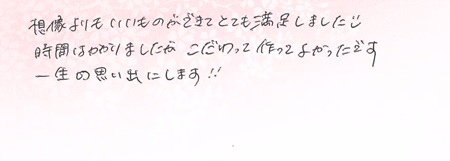 想像よりもいいものができてとても満足しました
時間はかかりましたが こだわって作ってよかったです
一生の思い出にします!!